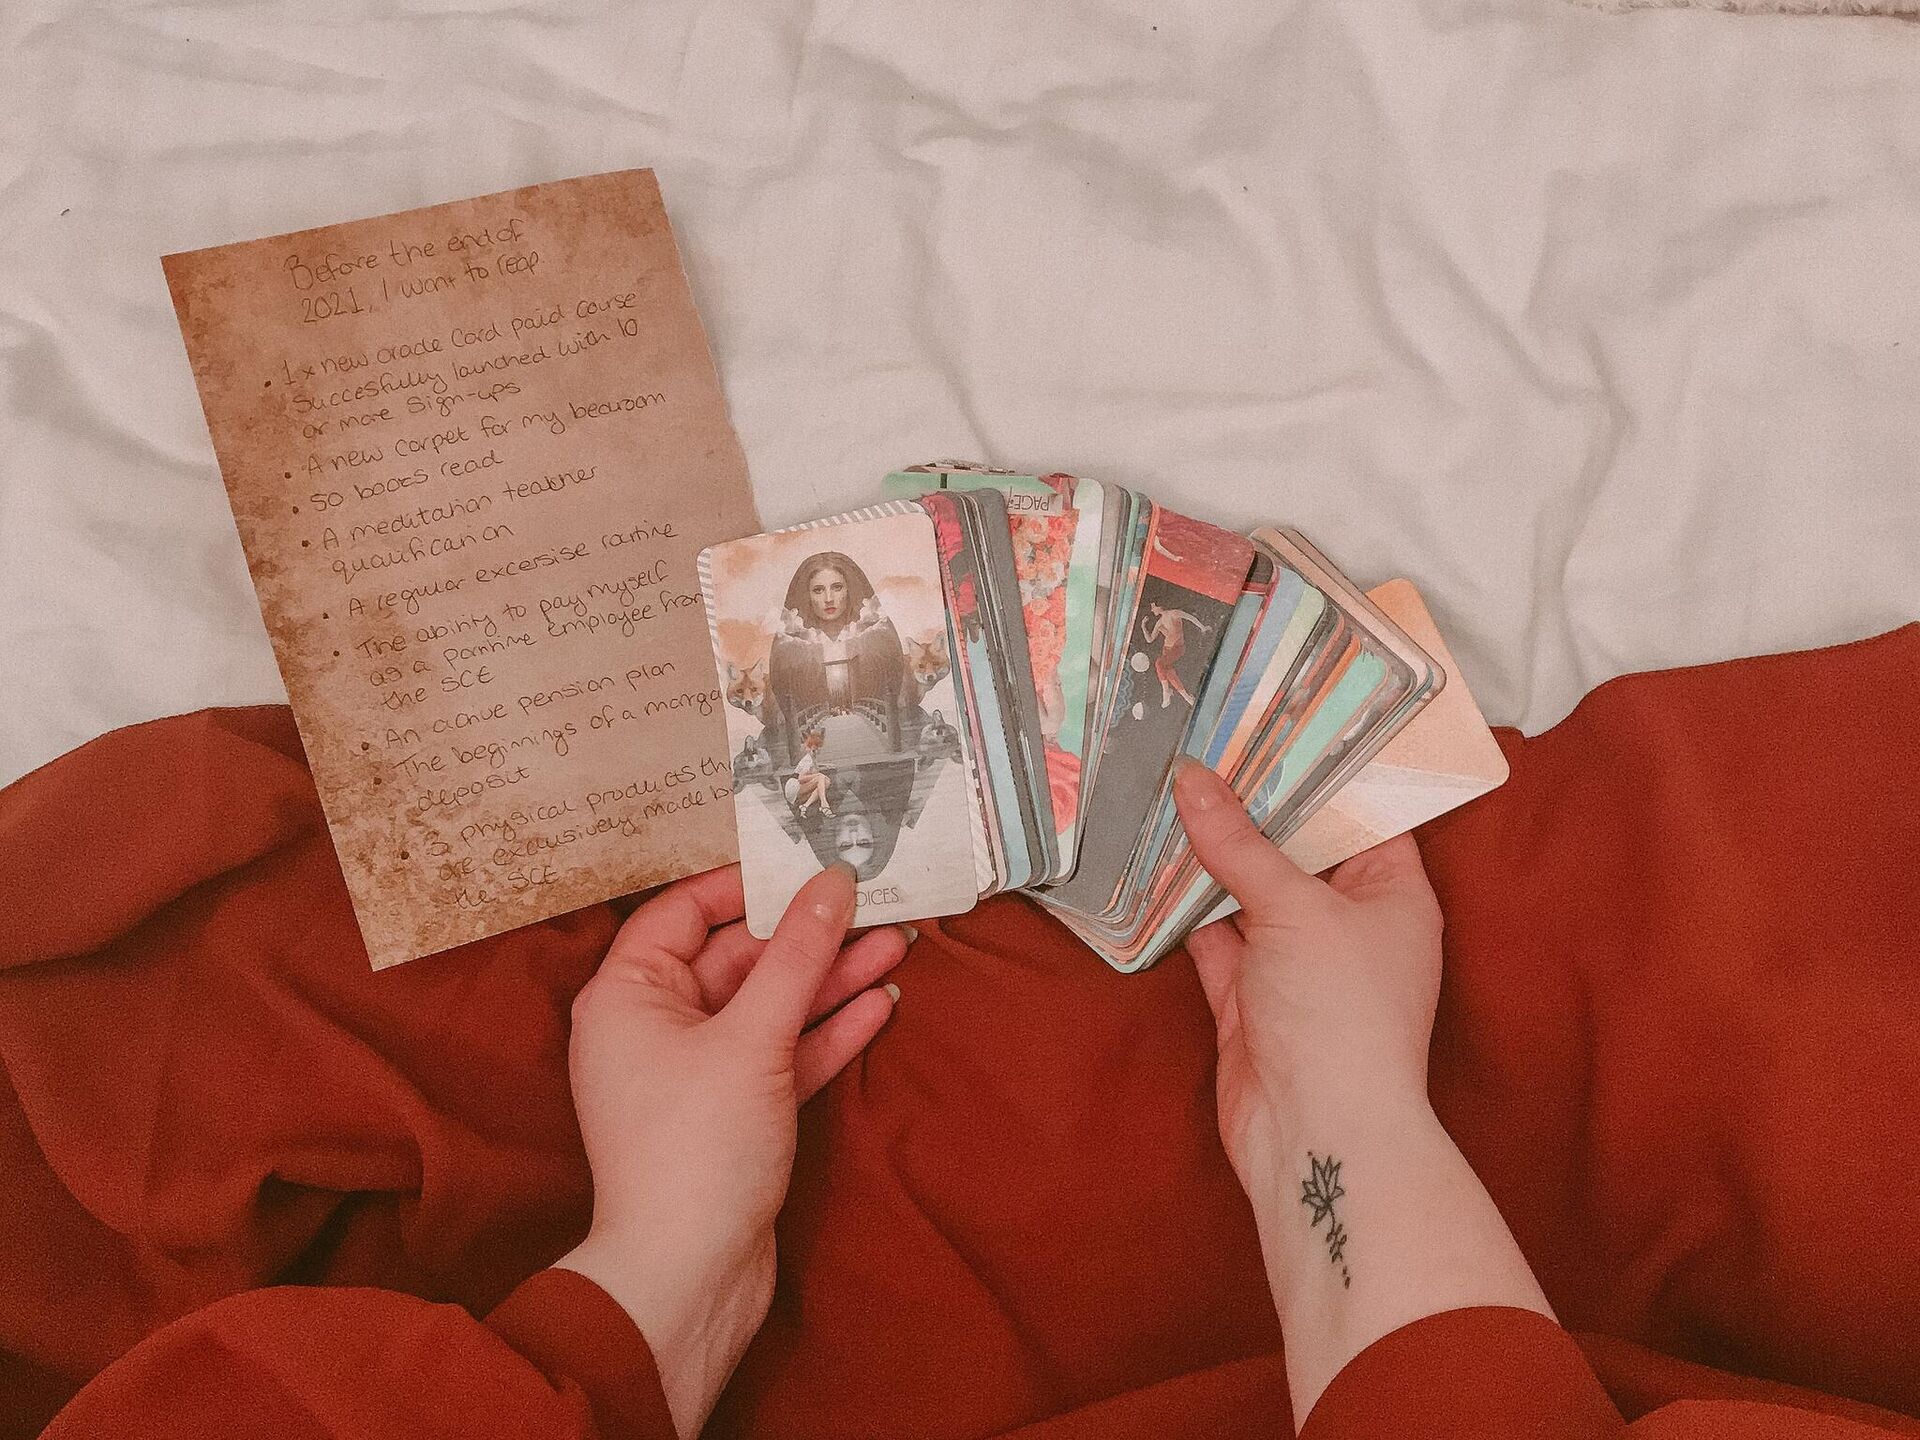 Before the end of
2021, I want to reap
• 1 x new oracle Card paid course
Succesfully launched with 10
or more sign-ups
• A new carpet for my bedroom
• 50 books read
• A meditation teacher
qualification
• A regular excersise routine
• The ability to pay myself
as a partime employee from
the SCE
• An active pension plan
• The beginnings of a morga
deposit
• 3 physical products th
are exclusively made b
the SCE
PAGE
OICES